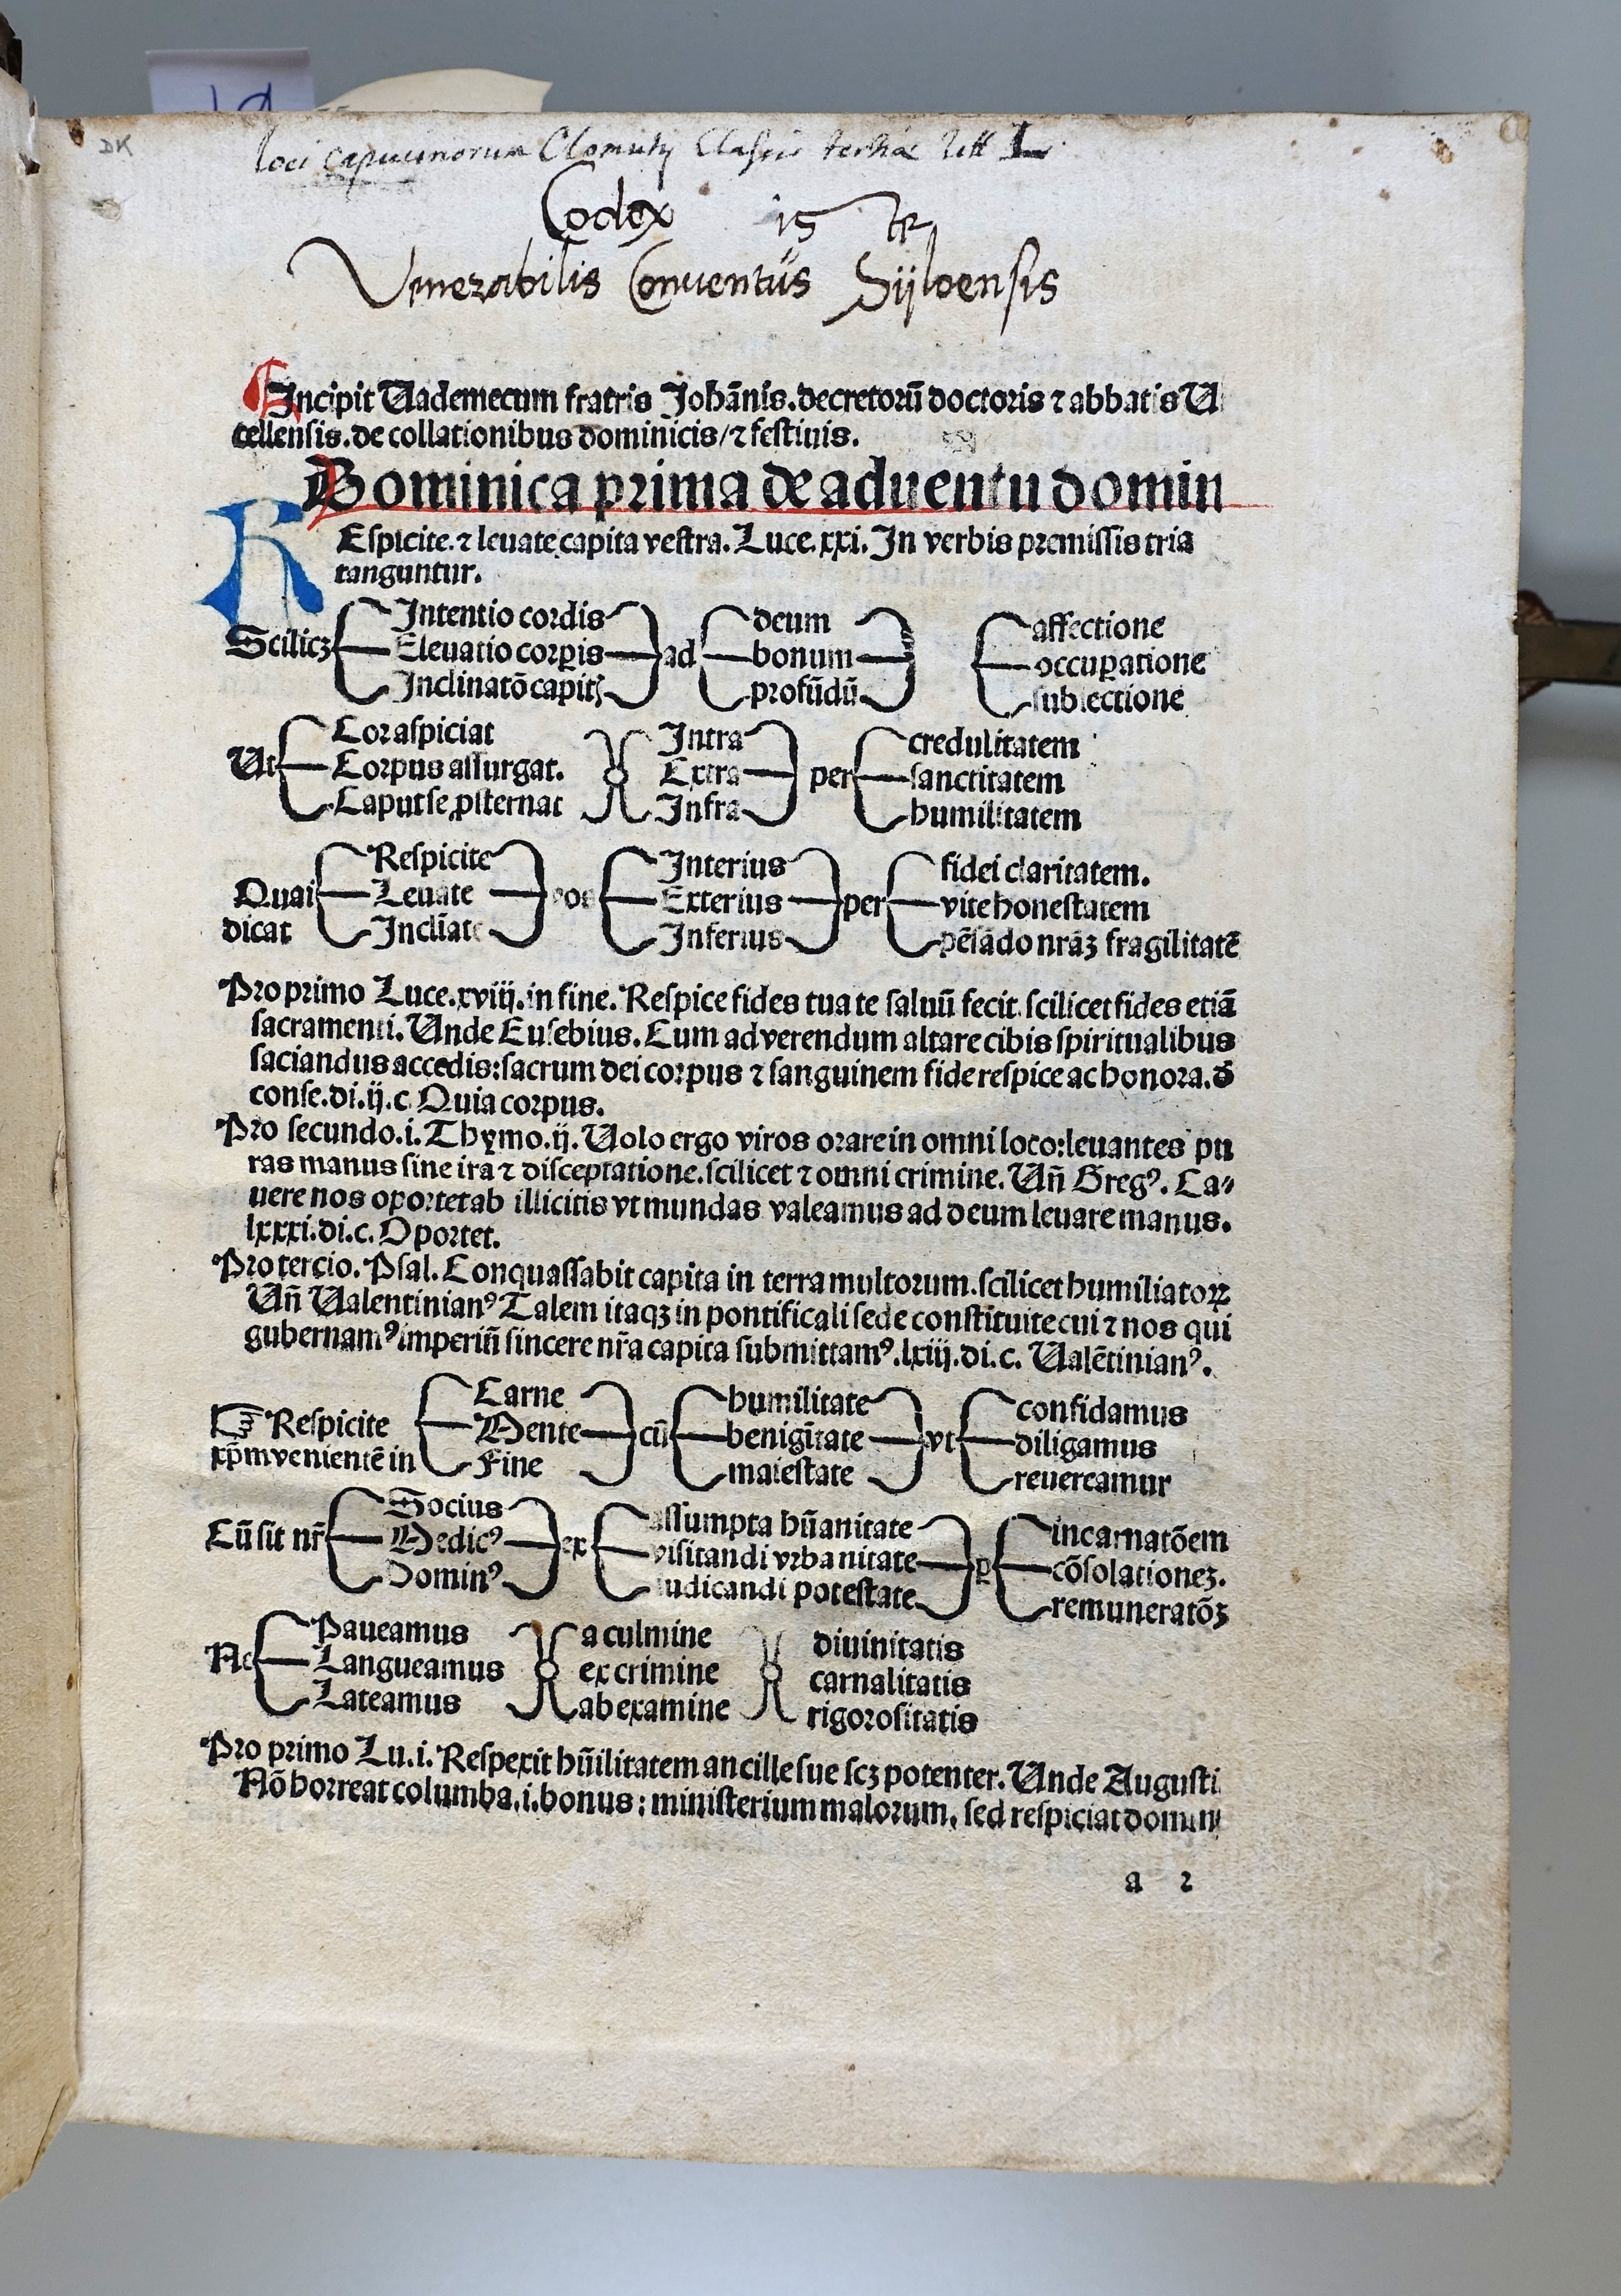 DK
loci capucinorum Olomutij Classis tertiae litt L.
Codex is te
Venerabilis Conventus
Incipit Uademecum fratris Johānis. decretorū doctoris ⁊ abbatis U
cellensis. de collationibus dominicis/ ⁊ festiuis.
Dominica prima de aduentu domin
REspicite. ⁊ leuate capita vestra. Luce. xxi. In verbis premissis tria
tanguntur.
Intentio cordis deum affectione
Scilicꝫ Eleuatio corꝑis ad bonum occuꝑatione
Inclinatō capitꝭ profūdū subiectione
Cor aspiciat Intra credulitatem
Ut Corpus assurgat. Extra per sanctitatem
Caput se ꝓsternat Infra humilitatem
Respicite Interius fidei claritatem.
Quasi Leuate Exterius per vite honestatem
dicat Inclīate Inferius pēsādo nrāꝫ fragilitatē
Pro primo Luce. xviij. in fine. Respice fides tua te saluū fecit. scilicet fides etiā
sacramenti. Unde Eusebius. Cum ad verendum altare cibis spiritualibus
saciandus accedis: sacrum dei corpus ⁊ sanguinem fide respice ac honora. dē
conse. di. ij. c. Quia corpus.
Pro secundo. i. Thymo. ij. Uolo ergo viros orare in omni loco: leuantes pu
ras manus sine ira ⁊ disceptatione. scilicet ⁊ omni crimine. Uñ Gregꝰ. Ca⸗
uere nos oportet ab illicitis vt mundas valeamus ad deum leuare manus.
lxxxi. di. c. Oportet.
Pro tercio. Psal. Conquassabit capita in terra multorum. scilicet humiliatoꝝ
Uñ Ualentinianꝰ Talem itaqꝫ in pontificali sede constituite cui ⁊ nos qui
gubernamꝰ imperiū sincere nr̄a capita submittamꝰ. lxiij. di. c. Ualētinianꝰ.
Carne humilitate confidamus
☞ Respicite Mente cū benigītate vt diligamus
xp̄m venientē in Fine maiestate reuereamur
Socius assumpta hūanitate incarnatōem
Cū sit nr̄ Medicꝰ ex visitandi vrbanitate ꝑ cōsolationeꝫ.
Dominꝰ iudicandi potestate remuneratōꝫ
Paueamus a culmine diuinitatis
Ne Langueamus ex crimine carnalitatis
Lateamus ab examine rigorositatis
Pro primo Lu. i. Respexit hūilitatem ancille sue scꝫ potenter. Unde Augusti
Nō horreat columba. i. bonus: ministerium malorum, sed respiciat domini
a 2